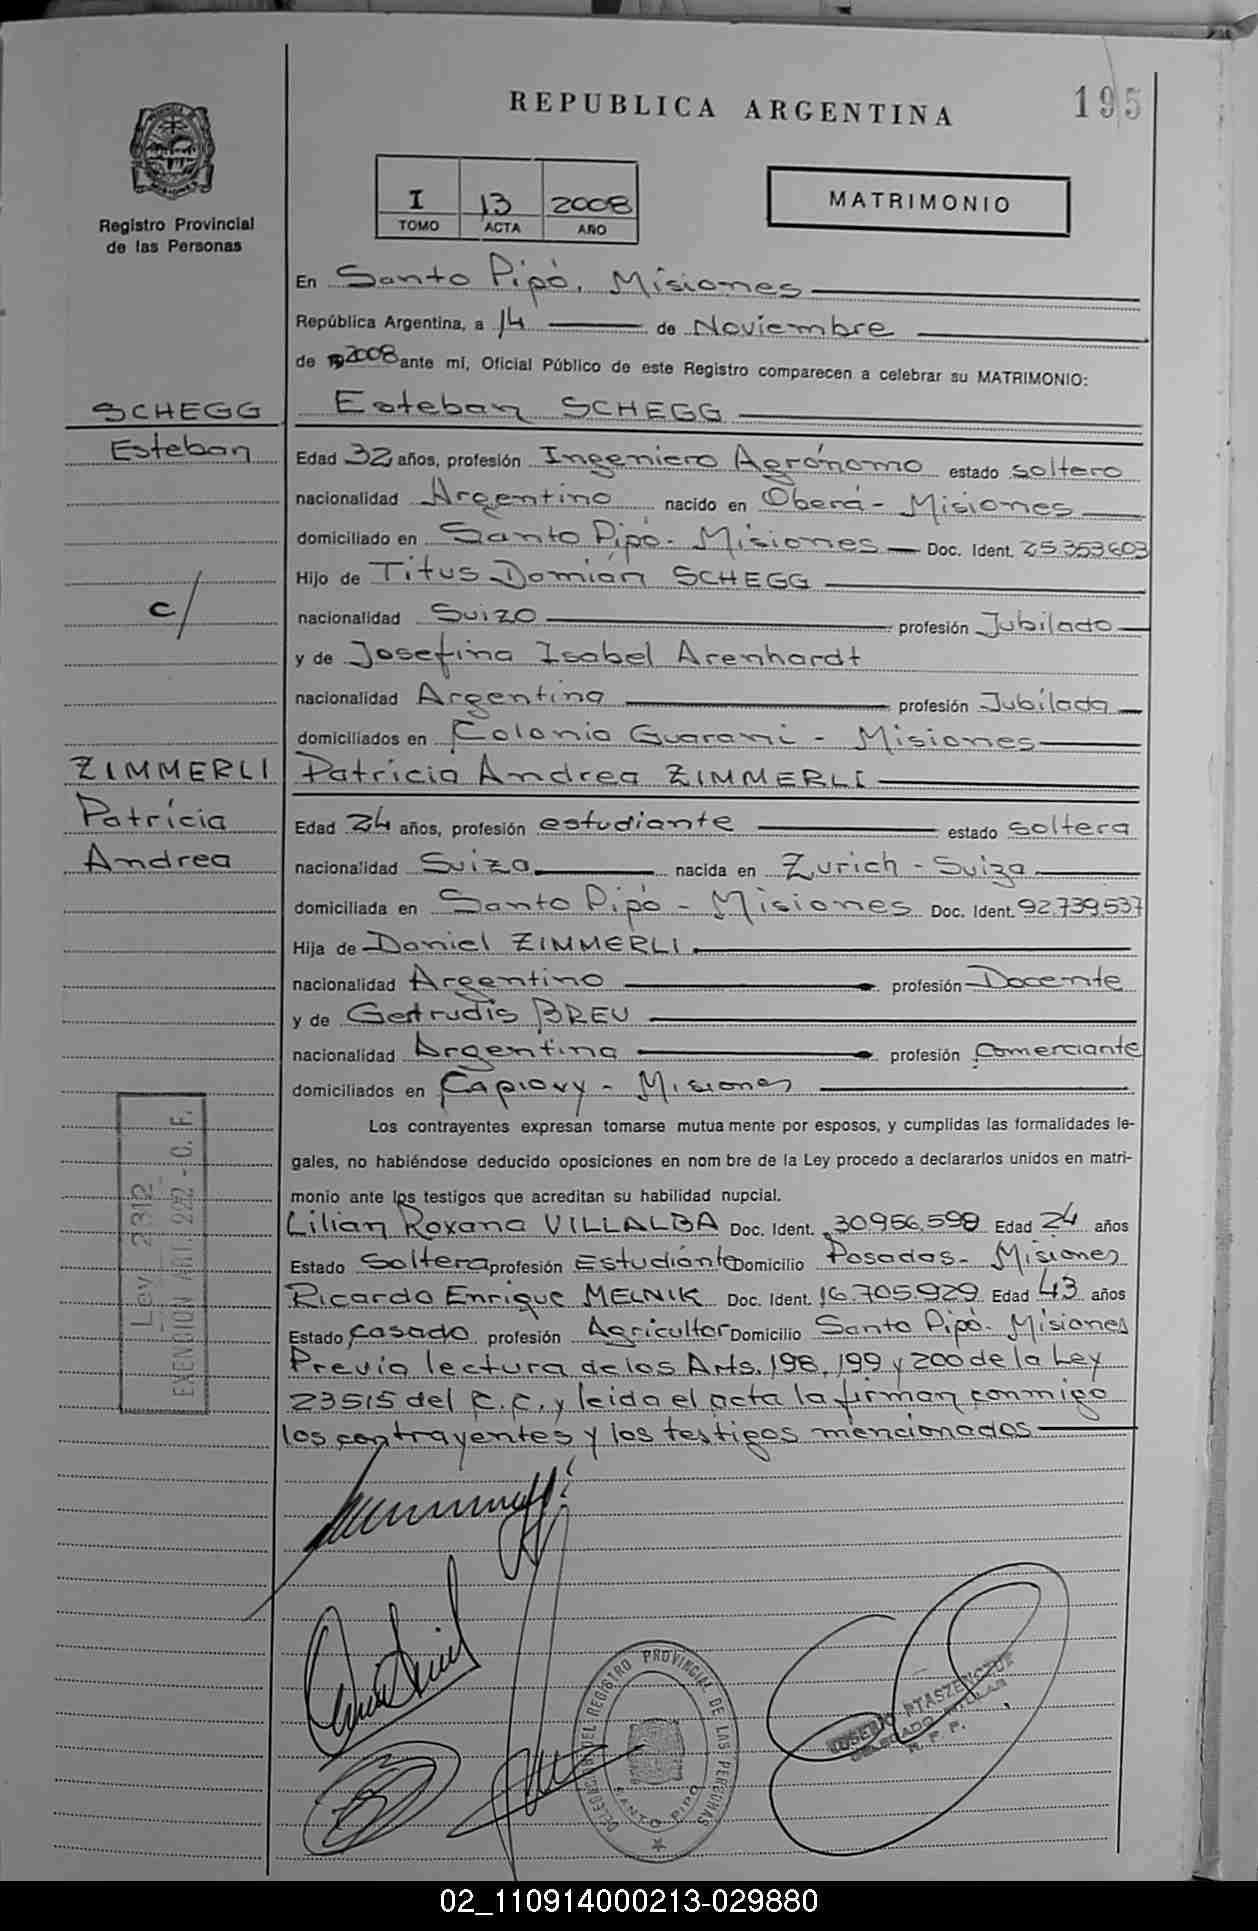 REPUBLICA ARGENTINA
195
Registro Provincial
de las Personas
I 13 2008
TOMO ACTA AÑO
MATRIMONIO
En Santo Pipó, Misiones
República Argentina, a 14 de Noviembre
de 2008 ante mí, Oficial Público de este Registro comparecen a celebrar su MATRIMONIO:
SCHEGG
Esteban
c/
ZIMMERLI
Patrícia
Andrea
Esteban SCHEGG
Edad 32 años, profesión Ingeniero Agrónomo estado soltero
nacionalidad Argentino nacido en Oberá - Misiones
domiciliado en Santo Pipó - Misiones Doc. Ident. 25.353.603
Hijo de Titus Domián SCHEGG
nacionalidad Suizo profesión Jubilado
y de Josefina Isabel Arenhardt
nacionalidad Argentina profesión Jubilada
domiciliados en Colonia Guarani - Misiones
Patricia Andrea ZIMMERLI
Edad 24 años, profesión estudiante estado soltera
nacionalidad Suiza nacida en Zurich - Suiza
domiciliada en Santo Pipó - Misiones Doc. Ident. 92.739.537
Hija de Daniel ZIMMERLI
nacionalidad Argentino profesión Docente
y de Gertrudis BREU
nacionalidad Argentina profesión Comerciante
domiciliados en Capiovy - Misiones
Los contrayentes expresan tomarse mutua mente por esposos, y cumplidas las formalidades le-
gales, no habiéndose deducido oposiciones en nom bre de la Ley procedo a declararlos unidos en matri-
monio ante los testigos que acreditan su habilidad nupcial.
Lilian Roxana VILLALBA Doc. Ident. 30.956.598 Edad 24 años
Estado Soltera profesión Estudiante Domicilio Posadas - Misiones
Ricardo Enrique MELNIK Doc. Ident. 16.705.929 Edad 43 años
Estado Casado profesión Agricultor Domicilio Santo Pipó - Misiones
Previa lectura de los Arts. 198, 199 y 200 de la Ley
23515 del C.C. y leida el acta la firman conmigo
los contrayentes y los testigos mencionados
Ley 2312
EXENCION ART. 222 - C. F.
DELEGACION DEL REGISTRO PROVINCIAL DE LAS PERSONAS
SANTO PIPO
DELEGADO TITULAR
R. P. P.
02_110914000213-029880